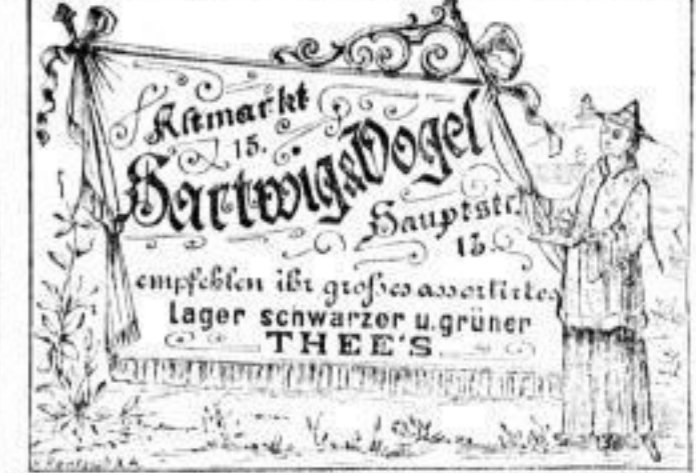 Altmarkt
15.
Hartwig & Vogel
Hauptstr.
empfehlen ihr großes assortirtes
Lager schwarzer u. grüner
THEE'S